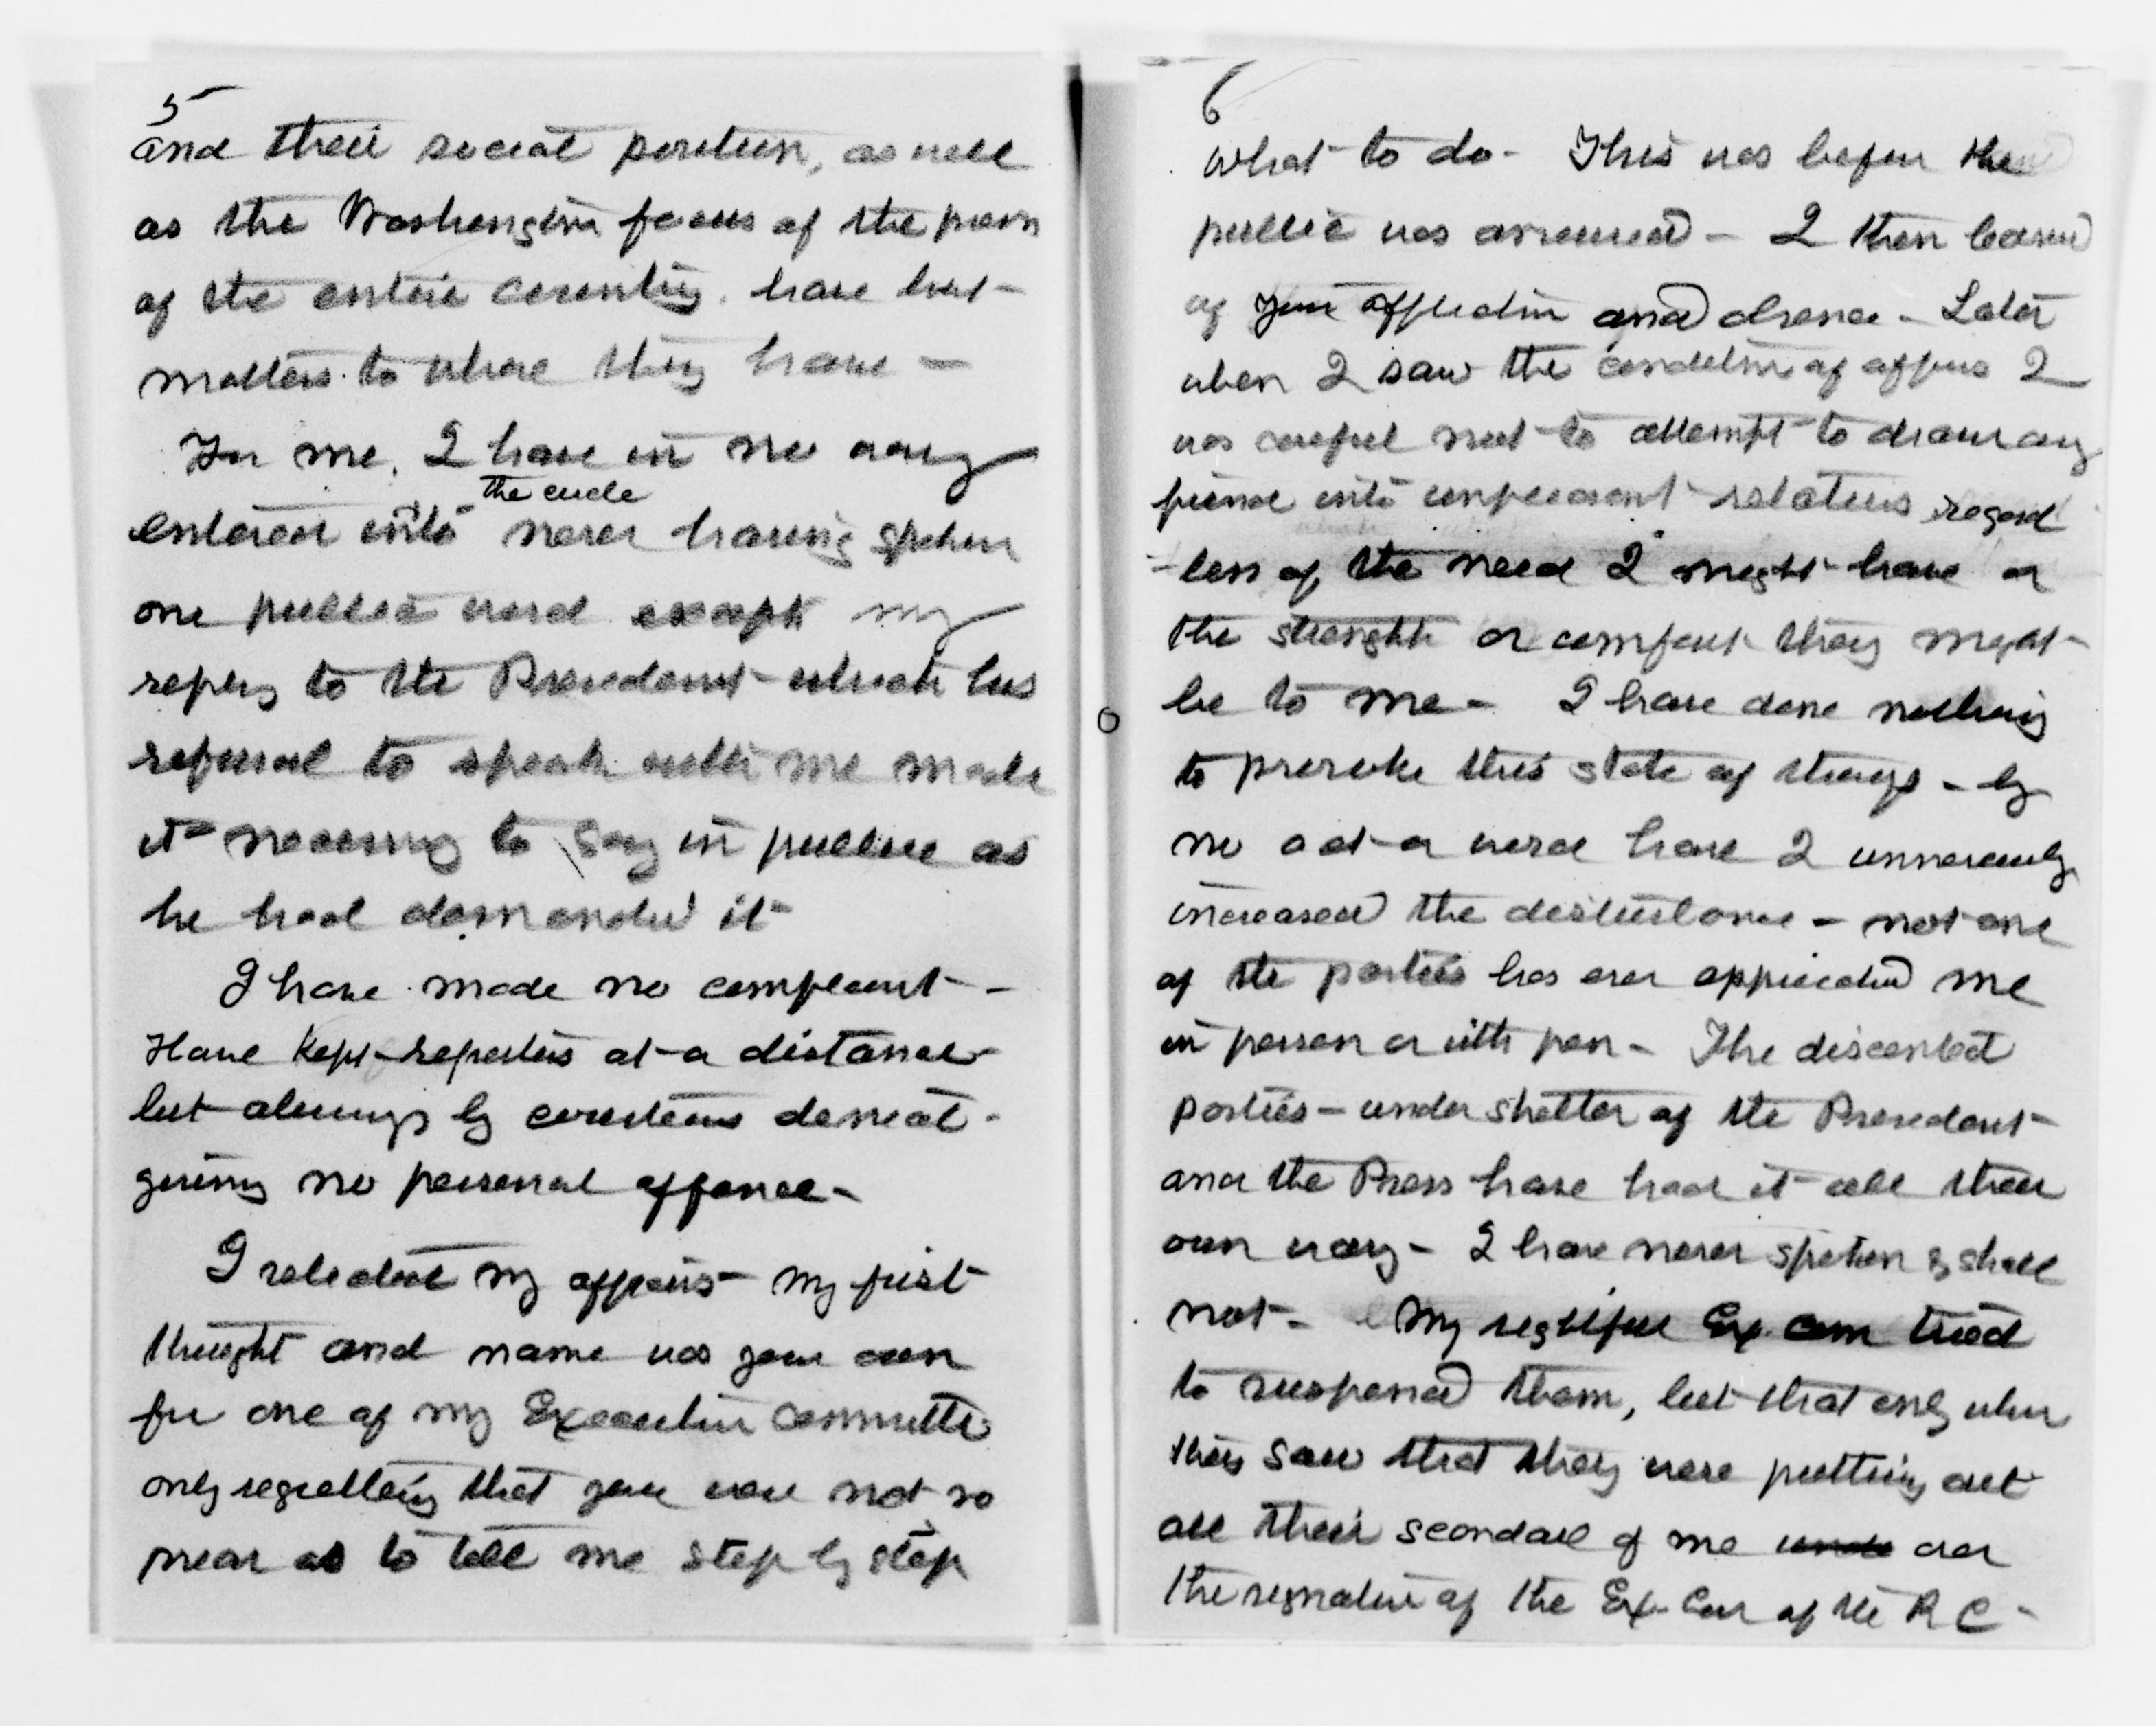 5
and their social position, as well
as the Washington focus of the press
of the entire country. have but
matters to where they have —
For me, I have in no way
the circle
entered into never having spoken
one public word except my
reply to the President which his
refusal to speak with me made
it necessary to say in public as
he had demanded it
I have made no complaint -
Have kept reporters at a distance
but always by courteous denial -
giving no personal offence -
I selected my officers - my first
thought and name was your own
for one of my Executive Committee
only regretting that you were not so
near as to tell me step by step
6
what to do - This was before the
public was announced - I then learned
of your affliction and absence - Later
when I saw the condition of affairs I
was careful not to attempt to draw any
friend into unpleasant relations regard
-less of the need I might have or
the strength or comfort they might
be to me - I have done nothing
to provoke this state of things - by
no act or word have I unnecessarily
increased the disturbance - not one
of the parties has ever approached me
in person or with pen - The discontent
parties - under shelter of the President
and the Press have had it all their
own way - I have never spoken & shall
not - My rightful Ex. Com tried
to suspend them, but that only when
they saw that they were putting out
all their scandal of me under over
the signature of the Ex. Com of the R C -